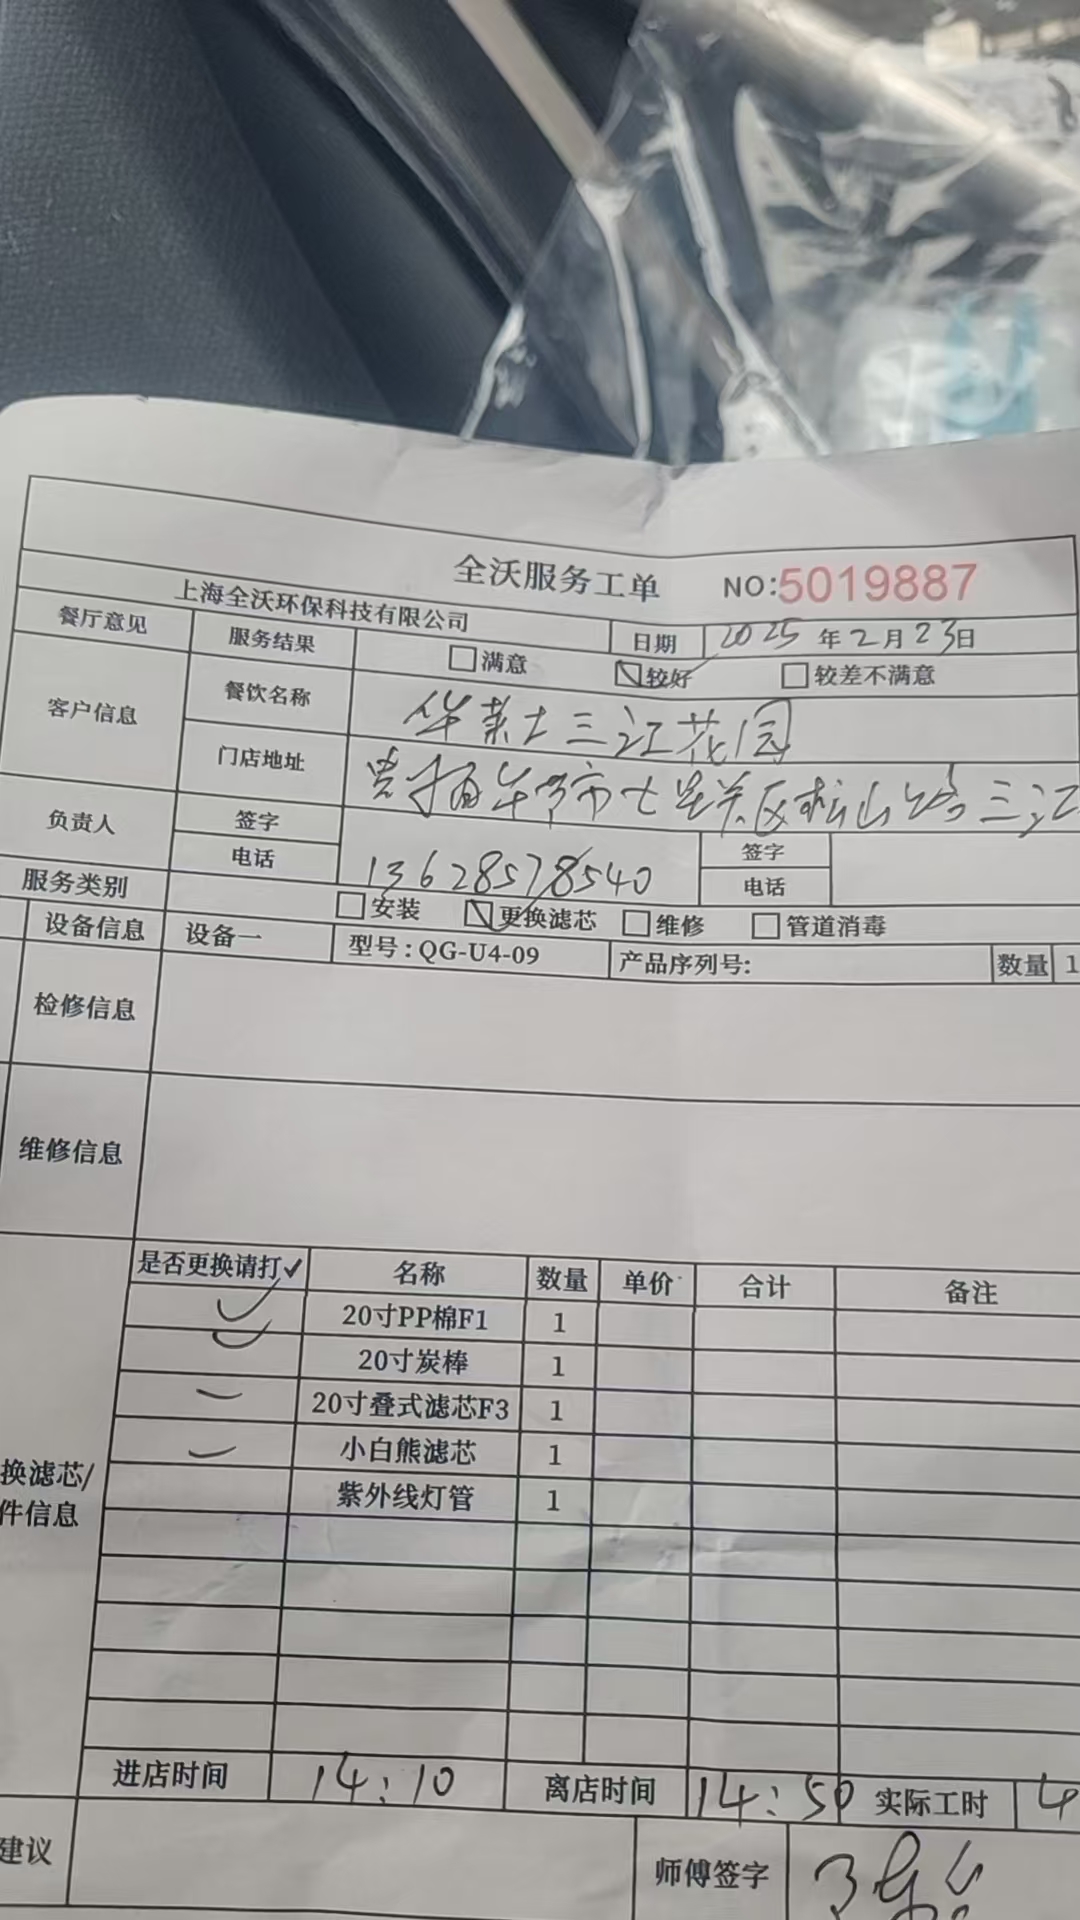 全沃服务工单 NO:5019887
上海全沃环保科技有限公司 日期 2025年2月23日
餐厅意见 服务结果 满意 较好 较差不满意
客户信息 餐饮名称 华莱士三江花园
门店地址 贵州省毕节市七星关区松山路三江
负责人 签字 签字
电话 13628578540 电话
服务类别 安装 更换滤芯 维修 管道消毒
设备信息 设备一 型号:QG-U4-09 产品序列号: 数量 1
检修信息
维修信息
是否更换请打✓ 名称 数量 单价 合计 备注
✓ 20寸PP棉F1 1
✓ 20寸炭棒 1
20寸叠式滤芯F3 1
小白熊滤芯 1
紫外线灯管 1
换滤芯/
件信息
进店时间 14:10 离店时间 14:50 实际工时 4
建议 师傅签字